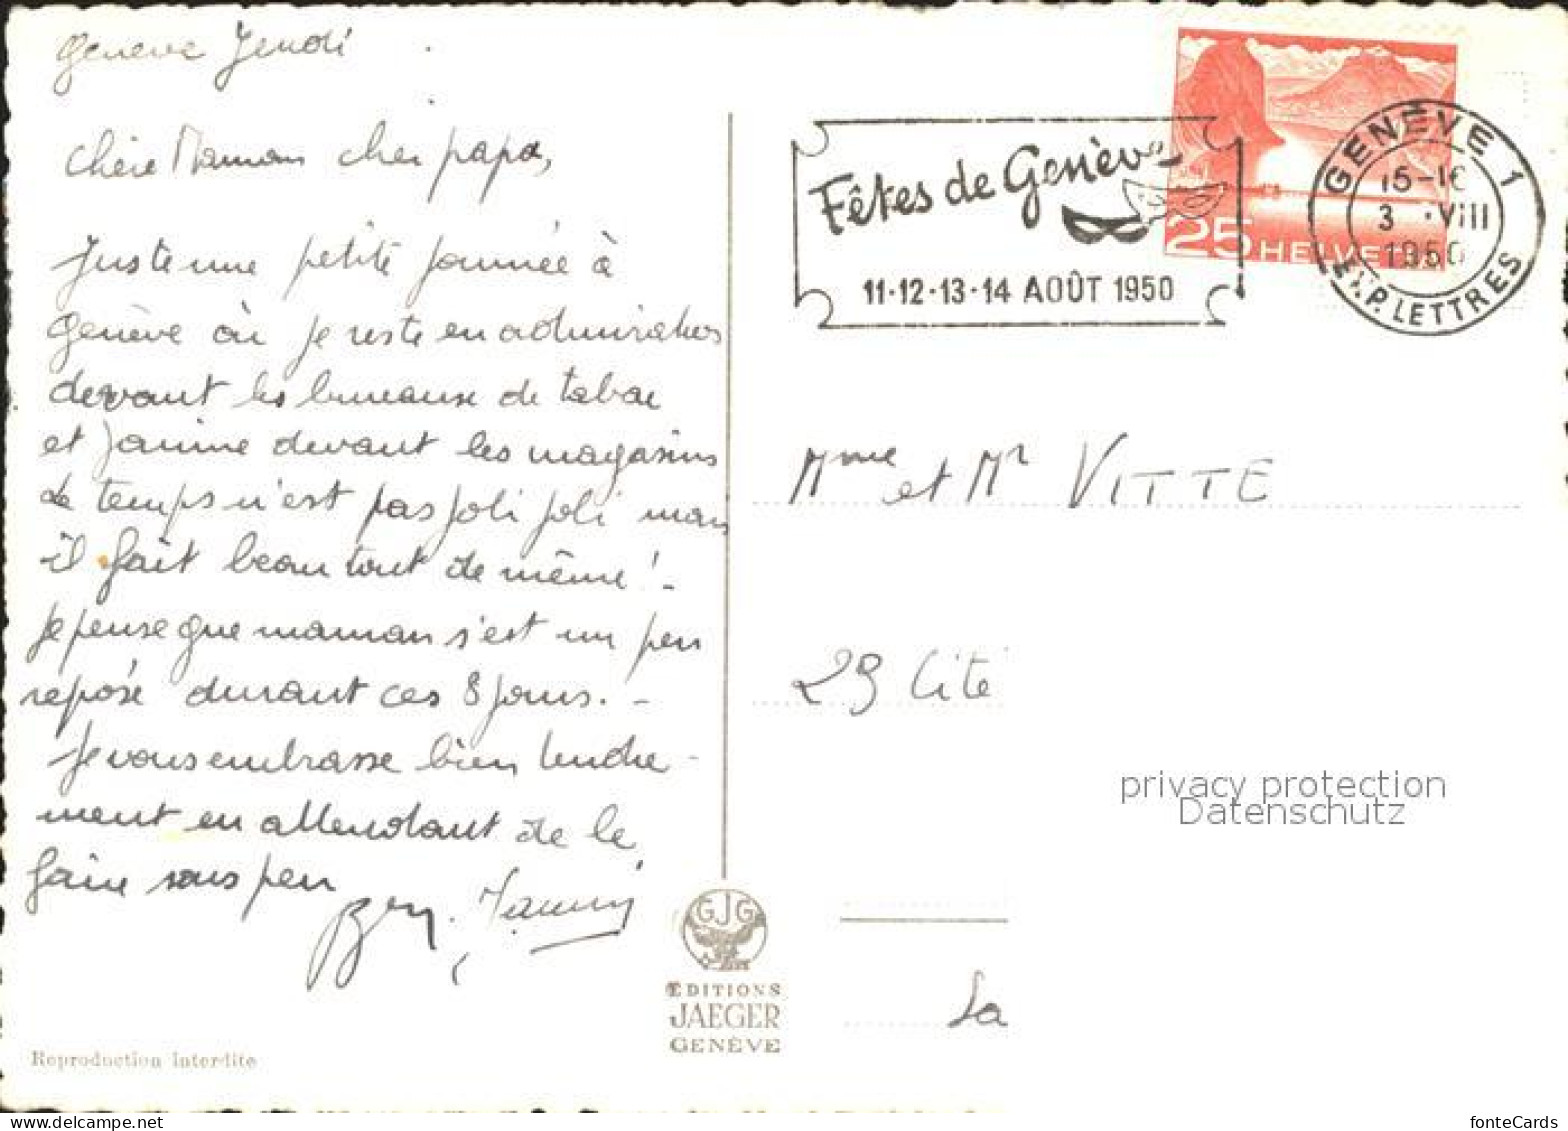 Genève Jeudi
Chère Maman cher papa,
Juste une petite journée à
Genève où je reste en admiration
devant les bureaux de tabac
et Janine devant les magasins
Le temps n'est pas joli joli mais
il fait beau tout de même ! -
Je pense que maman s'est un peu
reposé durant ces 8 jours. -
Je vous embrasse bien tendre-
ment en attendant de le
faire sous peu
Reproduction Interdite
GJG
ÉDITIONS
JAEGER
GENÈVE
Fêtes de Genève
11·12·13·14 AOÛT 1950
25 HELVETIA
GENÈVE 1
15-16
3 ·VIII
1950
EXP. LETTRES
Mme et Mr VITTE
29 Cité
privacy protection
Datenschutz
La
fonteCards